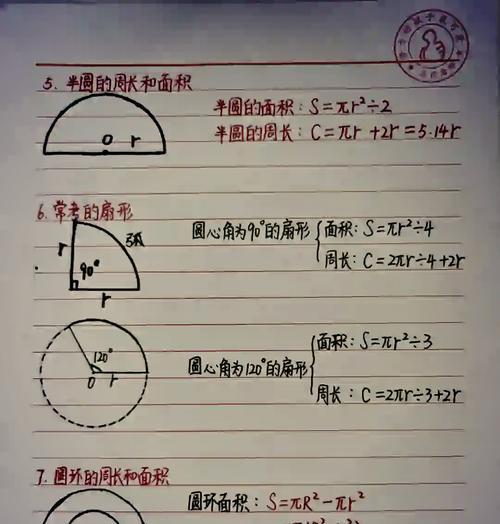 5. 半圆的周长和面积
半圆的面积: S=πr²÷2
半圆的周长: C=πr+2r=5.14r
O r
6. 常考的扇形
r 弧
90°
r
圆心角为90°的扇形
面积: S=πr²÷4
周长: C=2πr÷4+2r
120°
O r
圆心角为120°的扇形
面积: S=πr²÷3
周长: C=2πr÷3+2r
7. 圆环的周长和面积
圆环面积: S=πR²-πr²